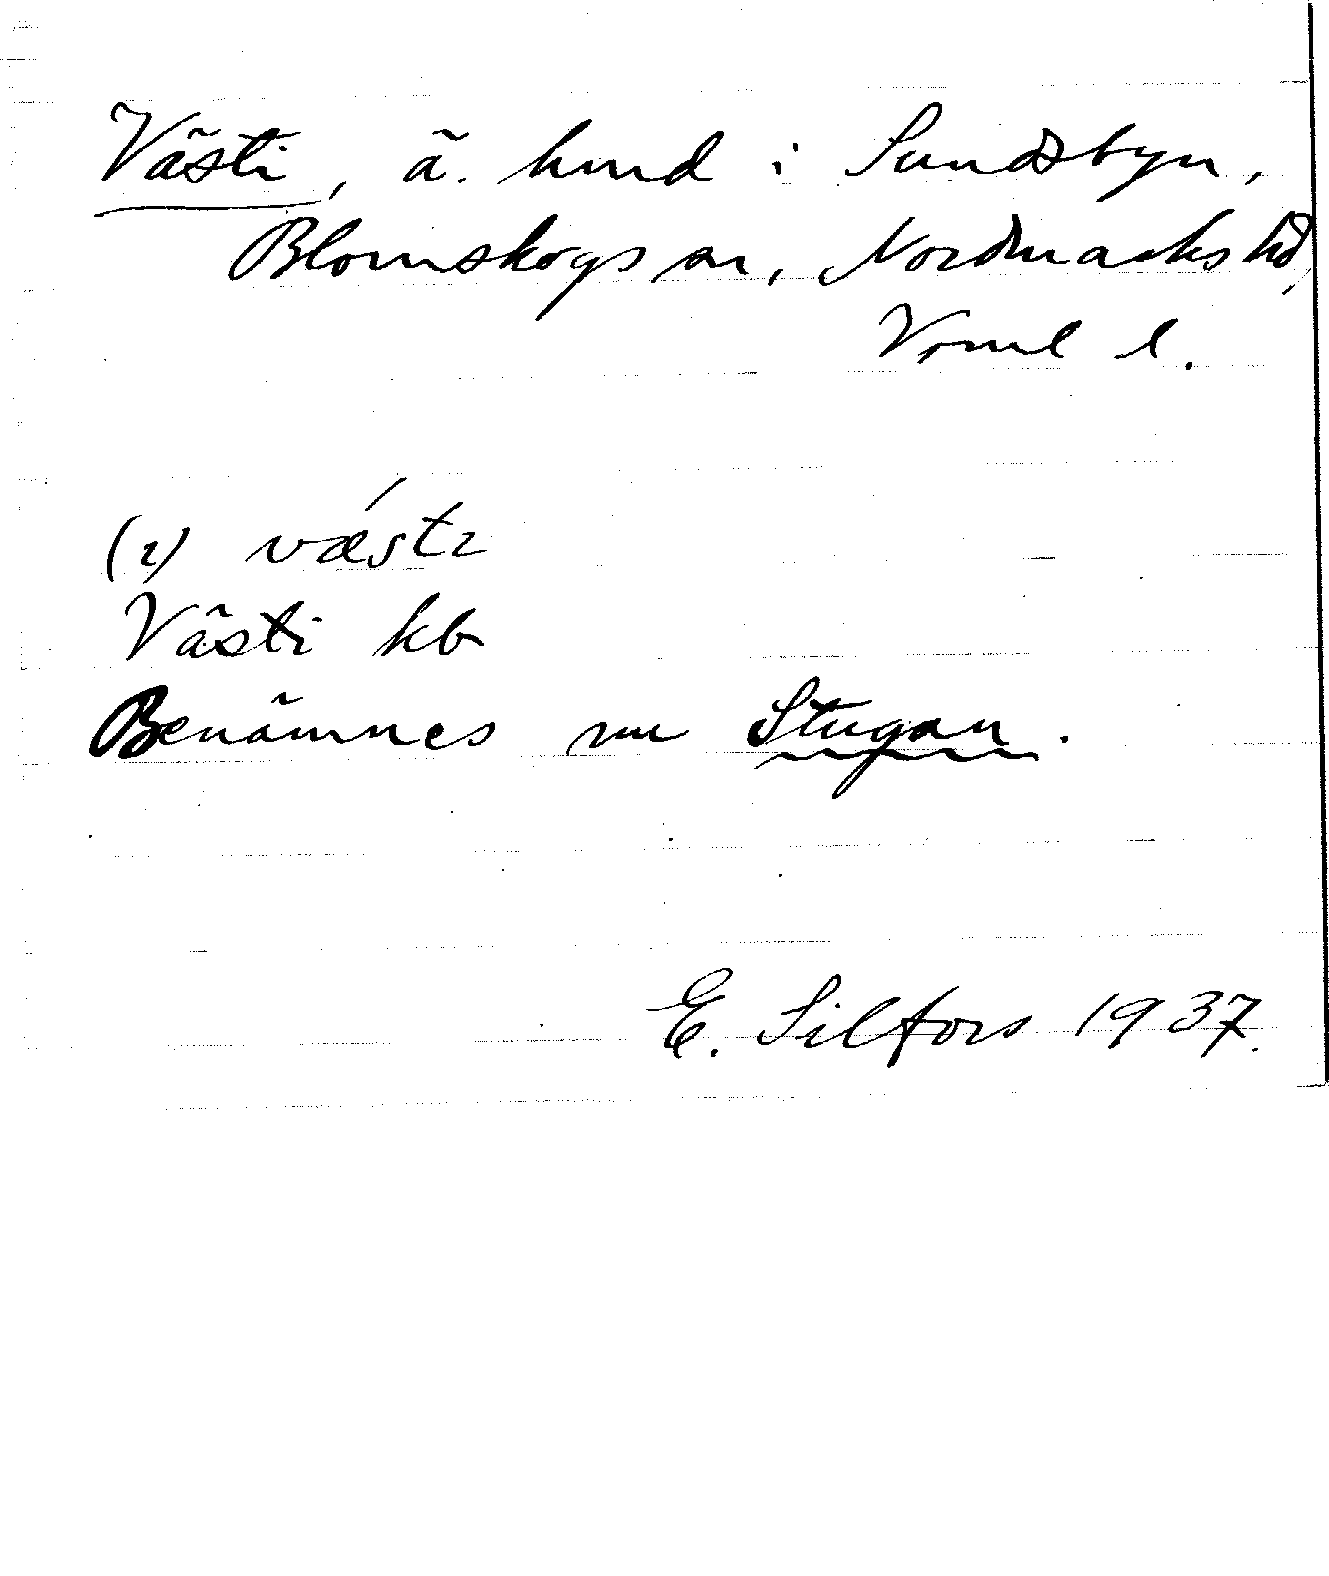 Västi, ä. hmd i Sundsbyn,
Blomskogs sn, Nordmarks hd,
Vrml l.
(i) vǽstɩ
Västi kb
Benämnes nu Stugan.
E. Silfors 1937.